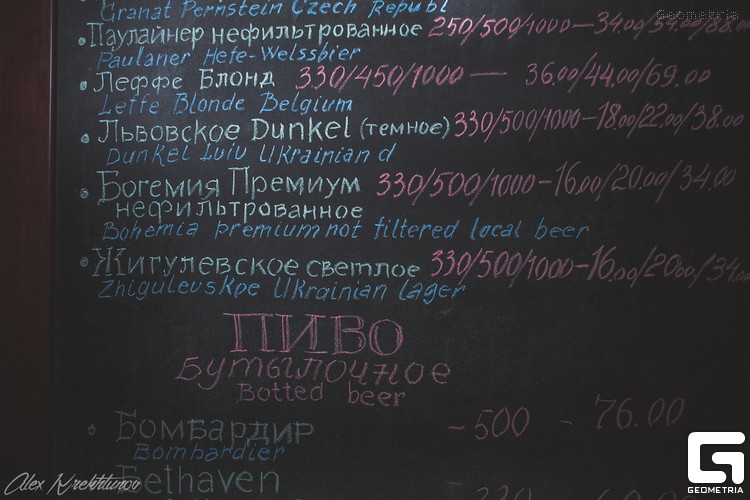 Granat Pernstein Czech Republ
Geometria
Паулайнер нефильтрованное 250/500/1000—34.00/57.00/88.00
Paulaner Hefe-Weissbier
Леффе Блонд 330/450/1000 — 36.00/44.00/69.00
Leffe Blonde Belgium
Львовское Dunkel (темное) 330/500/1000-18.00/22.00/38.00
Dunkel Lviv Ukrainian d
Богемия Премиум 330/500/1000-16.00/20.00/34.00
нефильтрованное
Bohemia premium not filtered local beer
Жигулевское светлое 330/500/1000-16.00/20.00/34.00
Zhigulevskoe Ukrainian lager
ПИВО
Бутылочное
Botted beer
Бомбардир - 500 - 76.00
Bombardier
Бethaven
GEOMETRIA